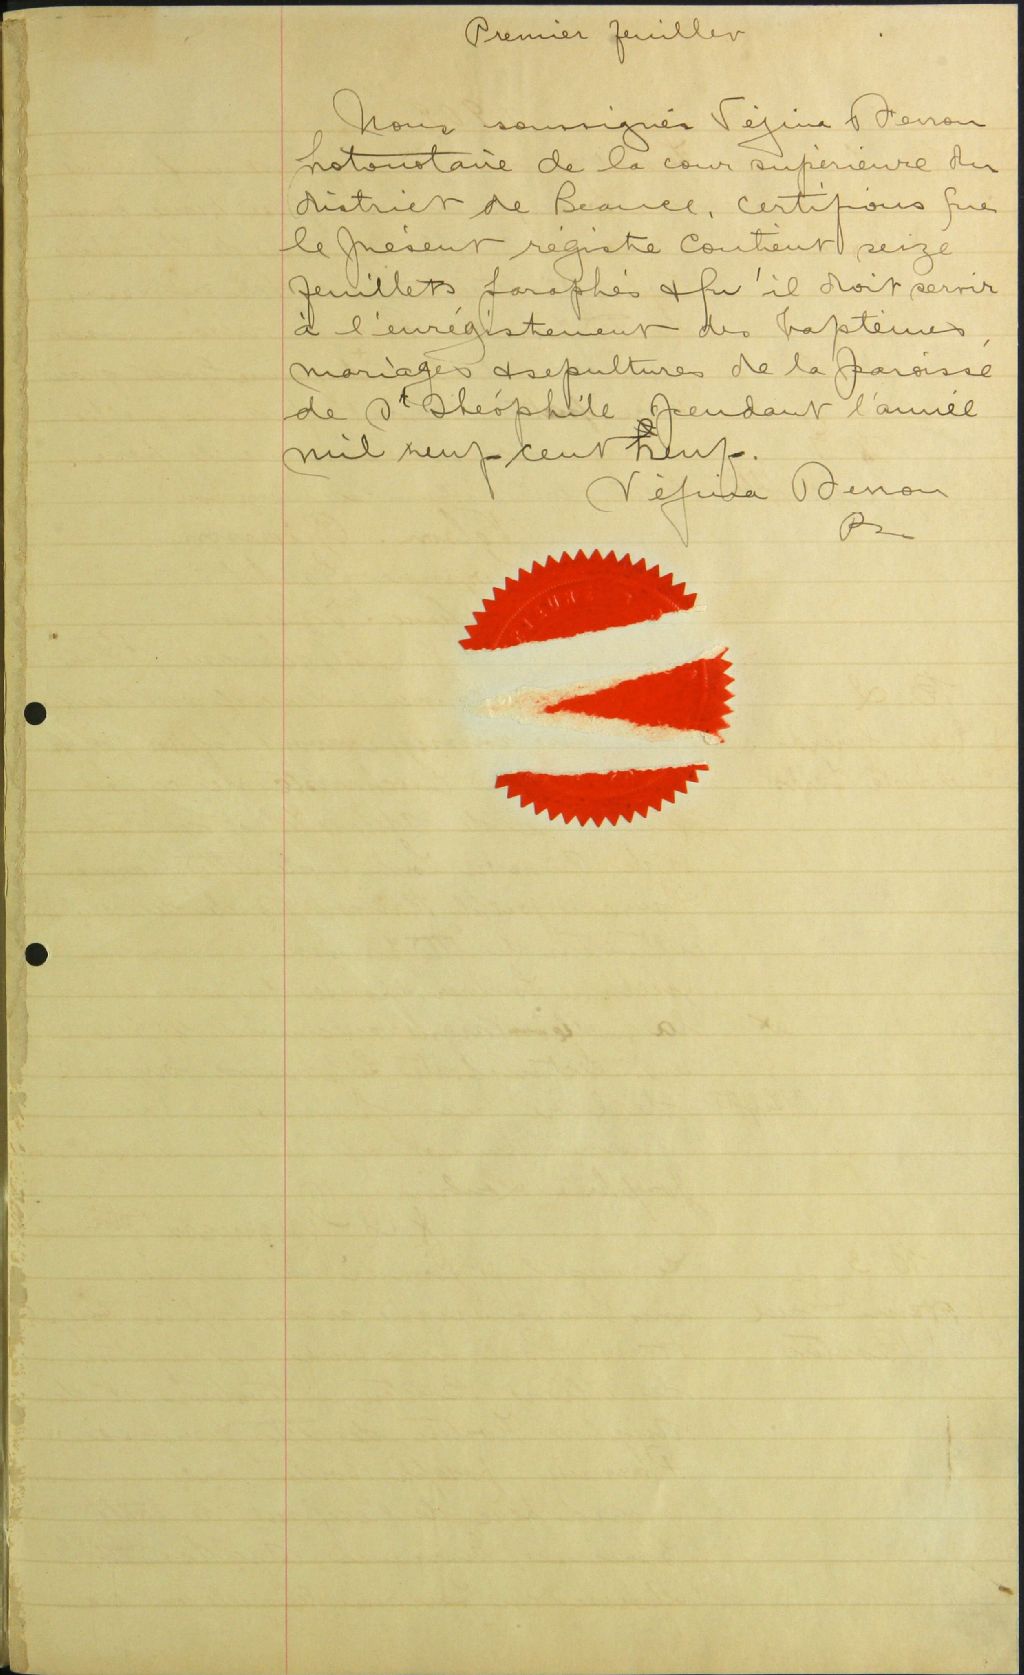 Premier feuillet
Nous soussignés Vézina & Derron
Protonotaire de la cour supérieure du
district de Beauce, certifions que
le présent régistre contient seize
feuillets paraphés & qu'il doit servir
à l'enrégistrement des baptêmes,
mariages & sepultures de la paroisse
de St Théophile pendant l'année
mil neuf cent neuf.
Vézina